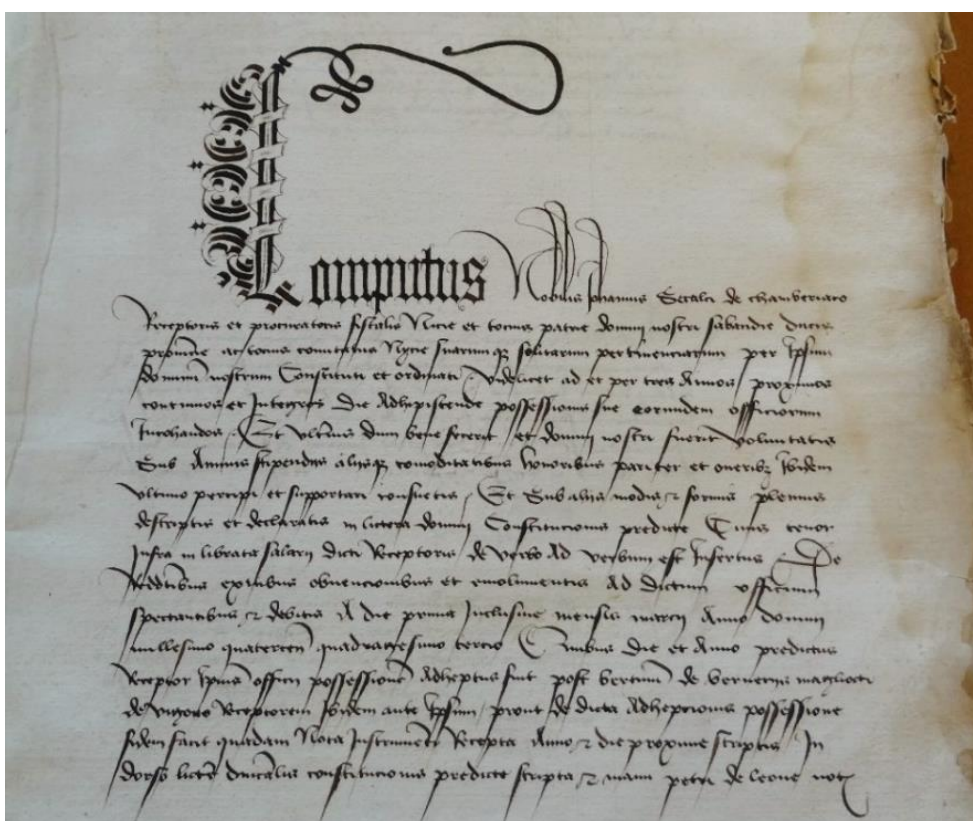 Computus Nobilis Johannis Secalci de chamberiaco
Receptoris et procuratoris fiscalis Nicie et tocius patrie domini nostri sabaudie ducis
provincie ac tocius comitatus Nycie suarumque solitarum pertinenciarum per Ipsum
dominum nostrum Constituti et ordinati videlicet ad et per tres Annos proximos
continuos et Integros Die Adhepiscende possessionis sue eorumdem officiorum
Inchoandos. Et ulterius dum bene fecerit et domini nostri fuerit voluntatis
Sub Annuis stipendiis aliisque comoditatibus honoribus pariter et oneribus Ibidem
ultimo percipi et supportari consuetis, Et Sub aliis modis et formis plenius
descriptis et declaratis in littera domini Constitucionis predicte Cuius tenor
Infra in libratis salarii dicti Receptoris de verbo Ad verbum est Insertus. De
Redditibus exitibus obvencionibus et emolumentis Ad dictum officium
spectantibus et debitis A die prima Inclusive mensis marcii Anno domini
millesimo quatercent quadragesimo tercio Quibus die et Anno predictus
Receptor Ipsius officii possessionem Adheptus fuit post de magliocti
de Receptorem Ibidem ante Ipsum, prout de dicta Adhepcionis possessione
fidem facit quedam Nota Instrumenti Recepta Anno et die proxime scriptis In
dorso littere ducalis constitucionis predicte scripta et manu petri de leone not